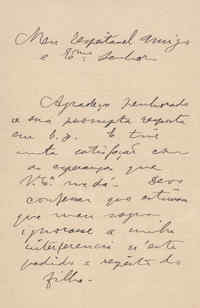 Meu respeitavel amigo
e Exmo. Senhor

Agradeço penhorado
a sua prompta resposta
em b. p. E tive
muita satisfação com
as esperanças que
V. Exa. me dá. Devo
confessar que estimava
que meu sogro
ignorasse a minha
interferencia n'este
pedido a respeito do
filho.